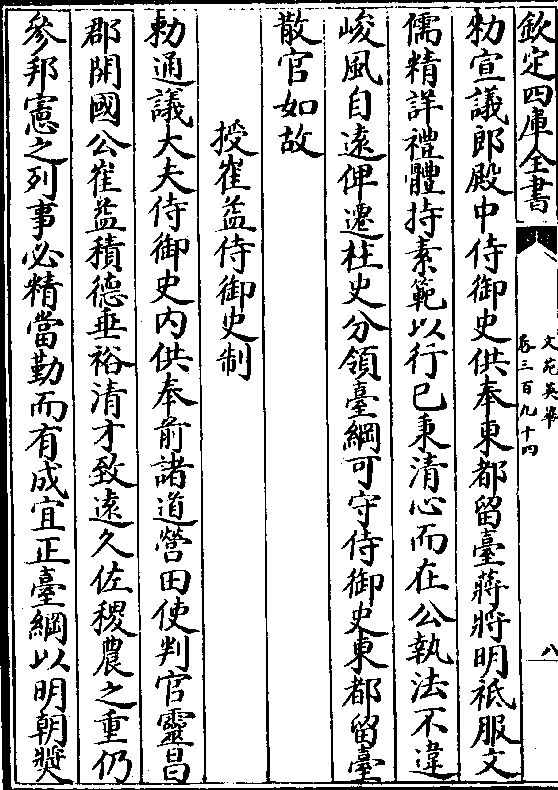 欽定四庫全書
文苑英華
卷三百九十四
八
勑宣議郎殿中侍御史供奉東都留臺蔣將明祗服文
儒精詳禮體持素範以行已秉清心而在公執法不違
峻風自遠俾遷柱史分領臺綱可守侍御史東都留臺
散官如故
授崔益侍御史制
勅通議大夫侍御史内供奉前諸道營田使判官靈昌
郡開國公崔益積德垂裕清才致遠久佐稷農之重仍
參邦憲之列事必精當勤而有成宜正臺綱以明朝奬